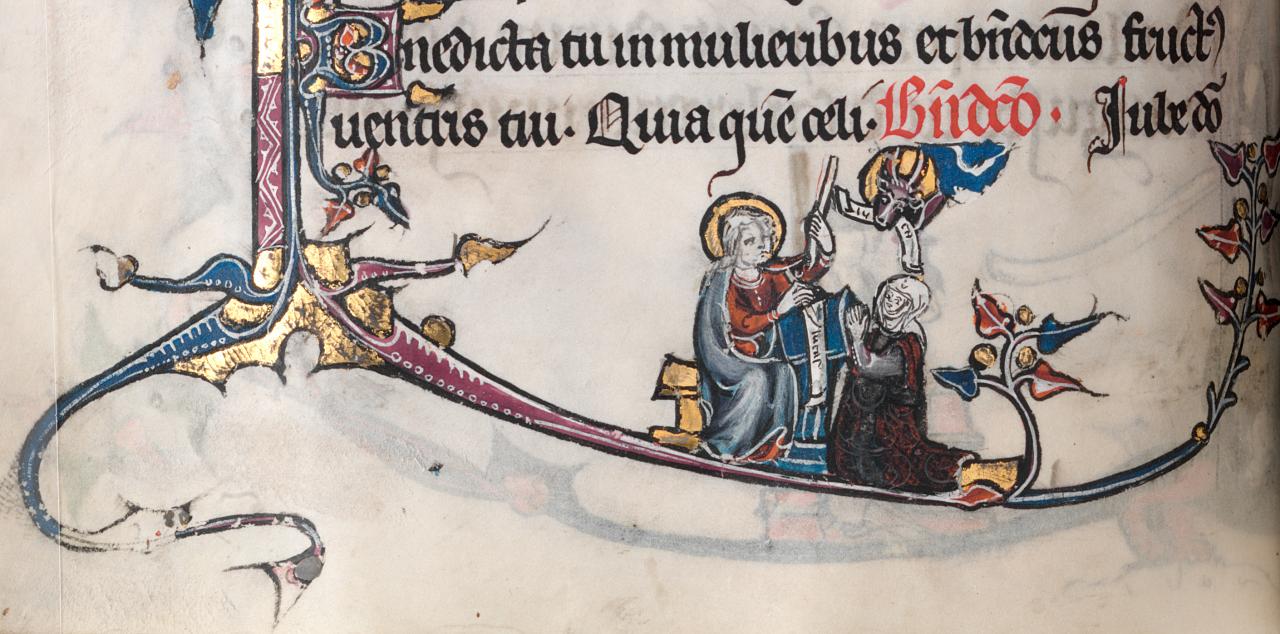 Benedicta tu in mulieribus et bn̄dcūs fruct᷒
uentris tui. Quia quē celi. Bn̄dcō. Jube dō